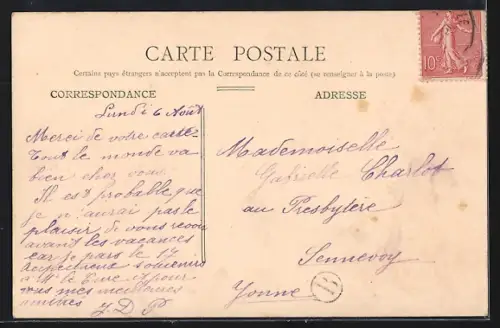 CARTE POSTALE
Certains pays étrangers n'acceptent pas la Correspondance de ce côté (se renseigner à la poste)
CORRESPONDANCE
ADRESSE
Lundi 6 Août
Merci de votre carte
Tout le monde va
bien chez vous.
Il est probable que
je n'aurai pas le
plaisir de vous revoir
avant les vacances
car je pars le 17
respectueux souvenirs
à Mr le Curé et pour
vous mes meilleures
J. D. P
Mademoiselle
Gabrielle Charlot
au Presbytère
Sennevoy
Yonne
10c